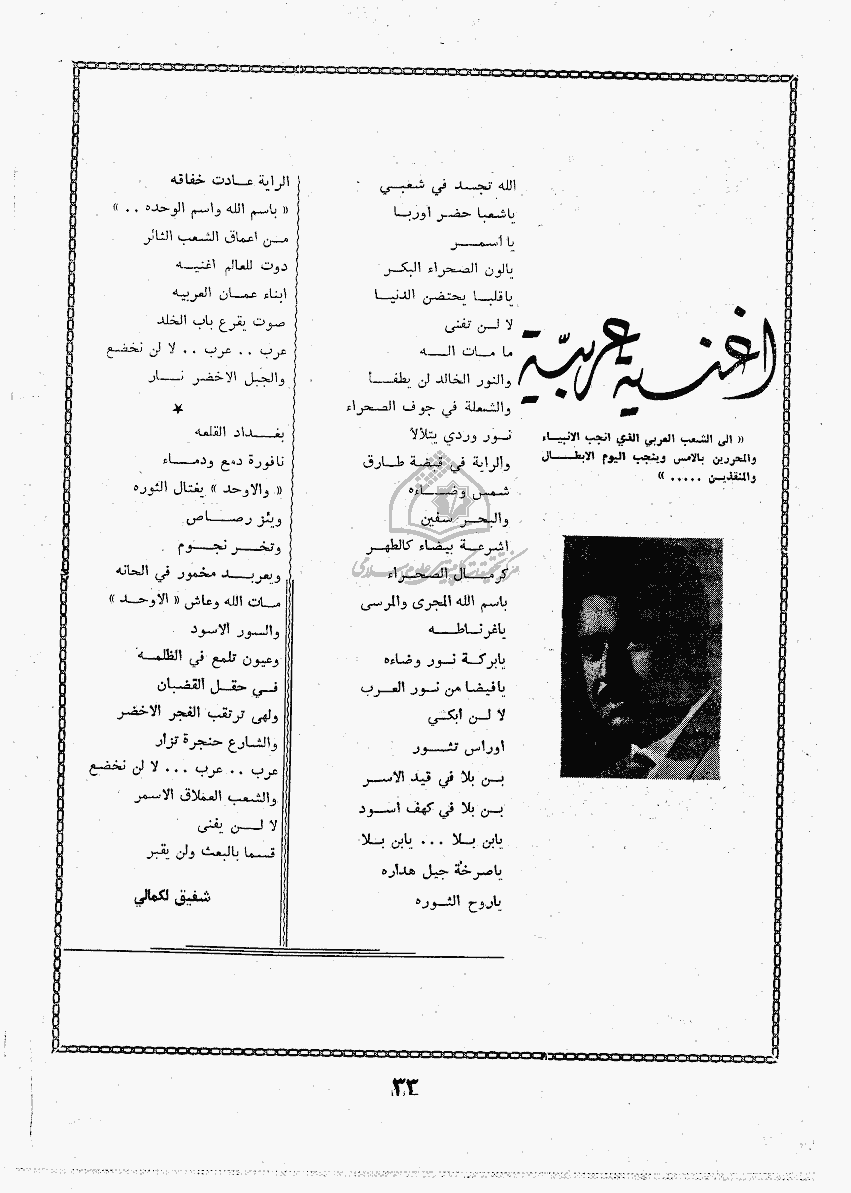 اغنية عربيّة
« الى الشعب العربي الذي انجب الانبياء
والمحررين بالامس وينجب اليوم الابطال
والمنقذين ..... »
الله تجسد في شعبي
ياشعبا حضر اوربا
يا أسمر
يالون الصحراء البكر
ياقلبا يحتضن الدنيا
لا لن تفنى
ما مات الله
والنور الخالد لن يطفأ
والشعلة في جوف الصحراء
نور وردي يتلألأ
والراية في قبضة طارق
شمس وضاءه
والبحر سفين
اشرعة بيضاء كالطهر
كرمال الصحراء
باسم الله المجرى والمرسى
ياغرناطه
يابركة نور وضاءه
يافيضا من نور العرب
لا لن أبكي
اوراس تثور
بن بلا في قيد الاسر
بن بلا في كهف أسود
يابن بلا ... يابن بلا
ياصرخة جيل هداره
ياروح الثوره
الراية عادت خفاقه
« باسم الله واسم الوحده .. »
من اعماق الشعب الثائر
دوت للعالم اغنيه
ابناء عمان العربيه
صوت يقرع باب الخلد
عرب .. عرب .. لا لن نخضع
والجبل الاخضر نار
★
بغداد القلعه
نافورة دمع ودماء
« والاوحد » يغتال الثوره
ويئز رصاص
وتخر نجوم
ويعربد مخمور في الحانه
مات الله وعاش « الاوحد »
والسور الاسود
وعيون تلمع في الظلمه
في حقل القضبان
ولهى ترتقب الفجر الاخضر
والشارع حنجرة تزأر
عرب .. عرب ... لا لن نخضع
والشعب العملاق الاسمر
لا لن يفنى
قسما بالبعث ولن يقبر
شفيق لكمالي
٣٣